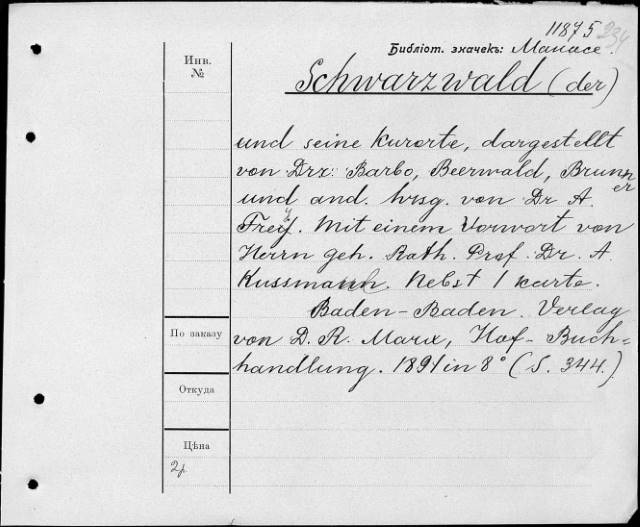 11875 234
Библіот. значекъ: Манасе.
Инв.
№
Schwarzwald (der)
und seine Kurorte, dargestellt
von Drx: Barbo, Beerwald, Brunner
und and. hrsg. von Dr A.
Frey. Mit einem Vorwort von
Herrn geh. Rath. Prof. Dr. A.
Kussmaul. Nebst 1 Karte.
Baden-Baden. Verlag
По заказу
von D. R. Marx, Hof-Buch=
handlung. 1891 in 8° (S. 344.)
Откуда
Цѣна
2р